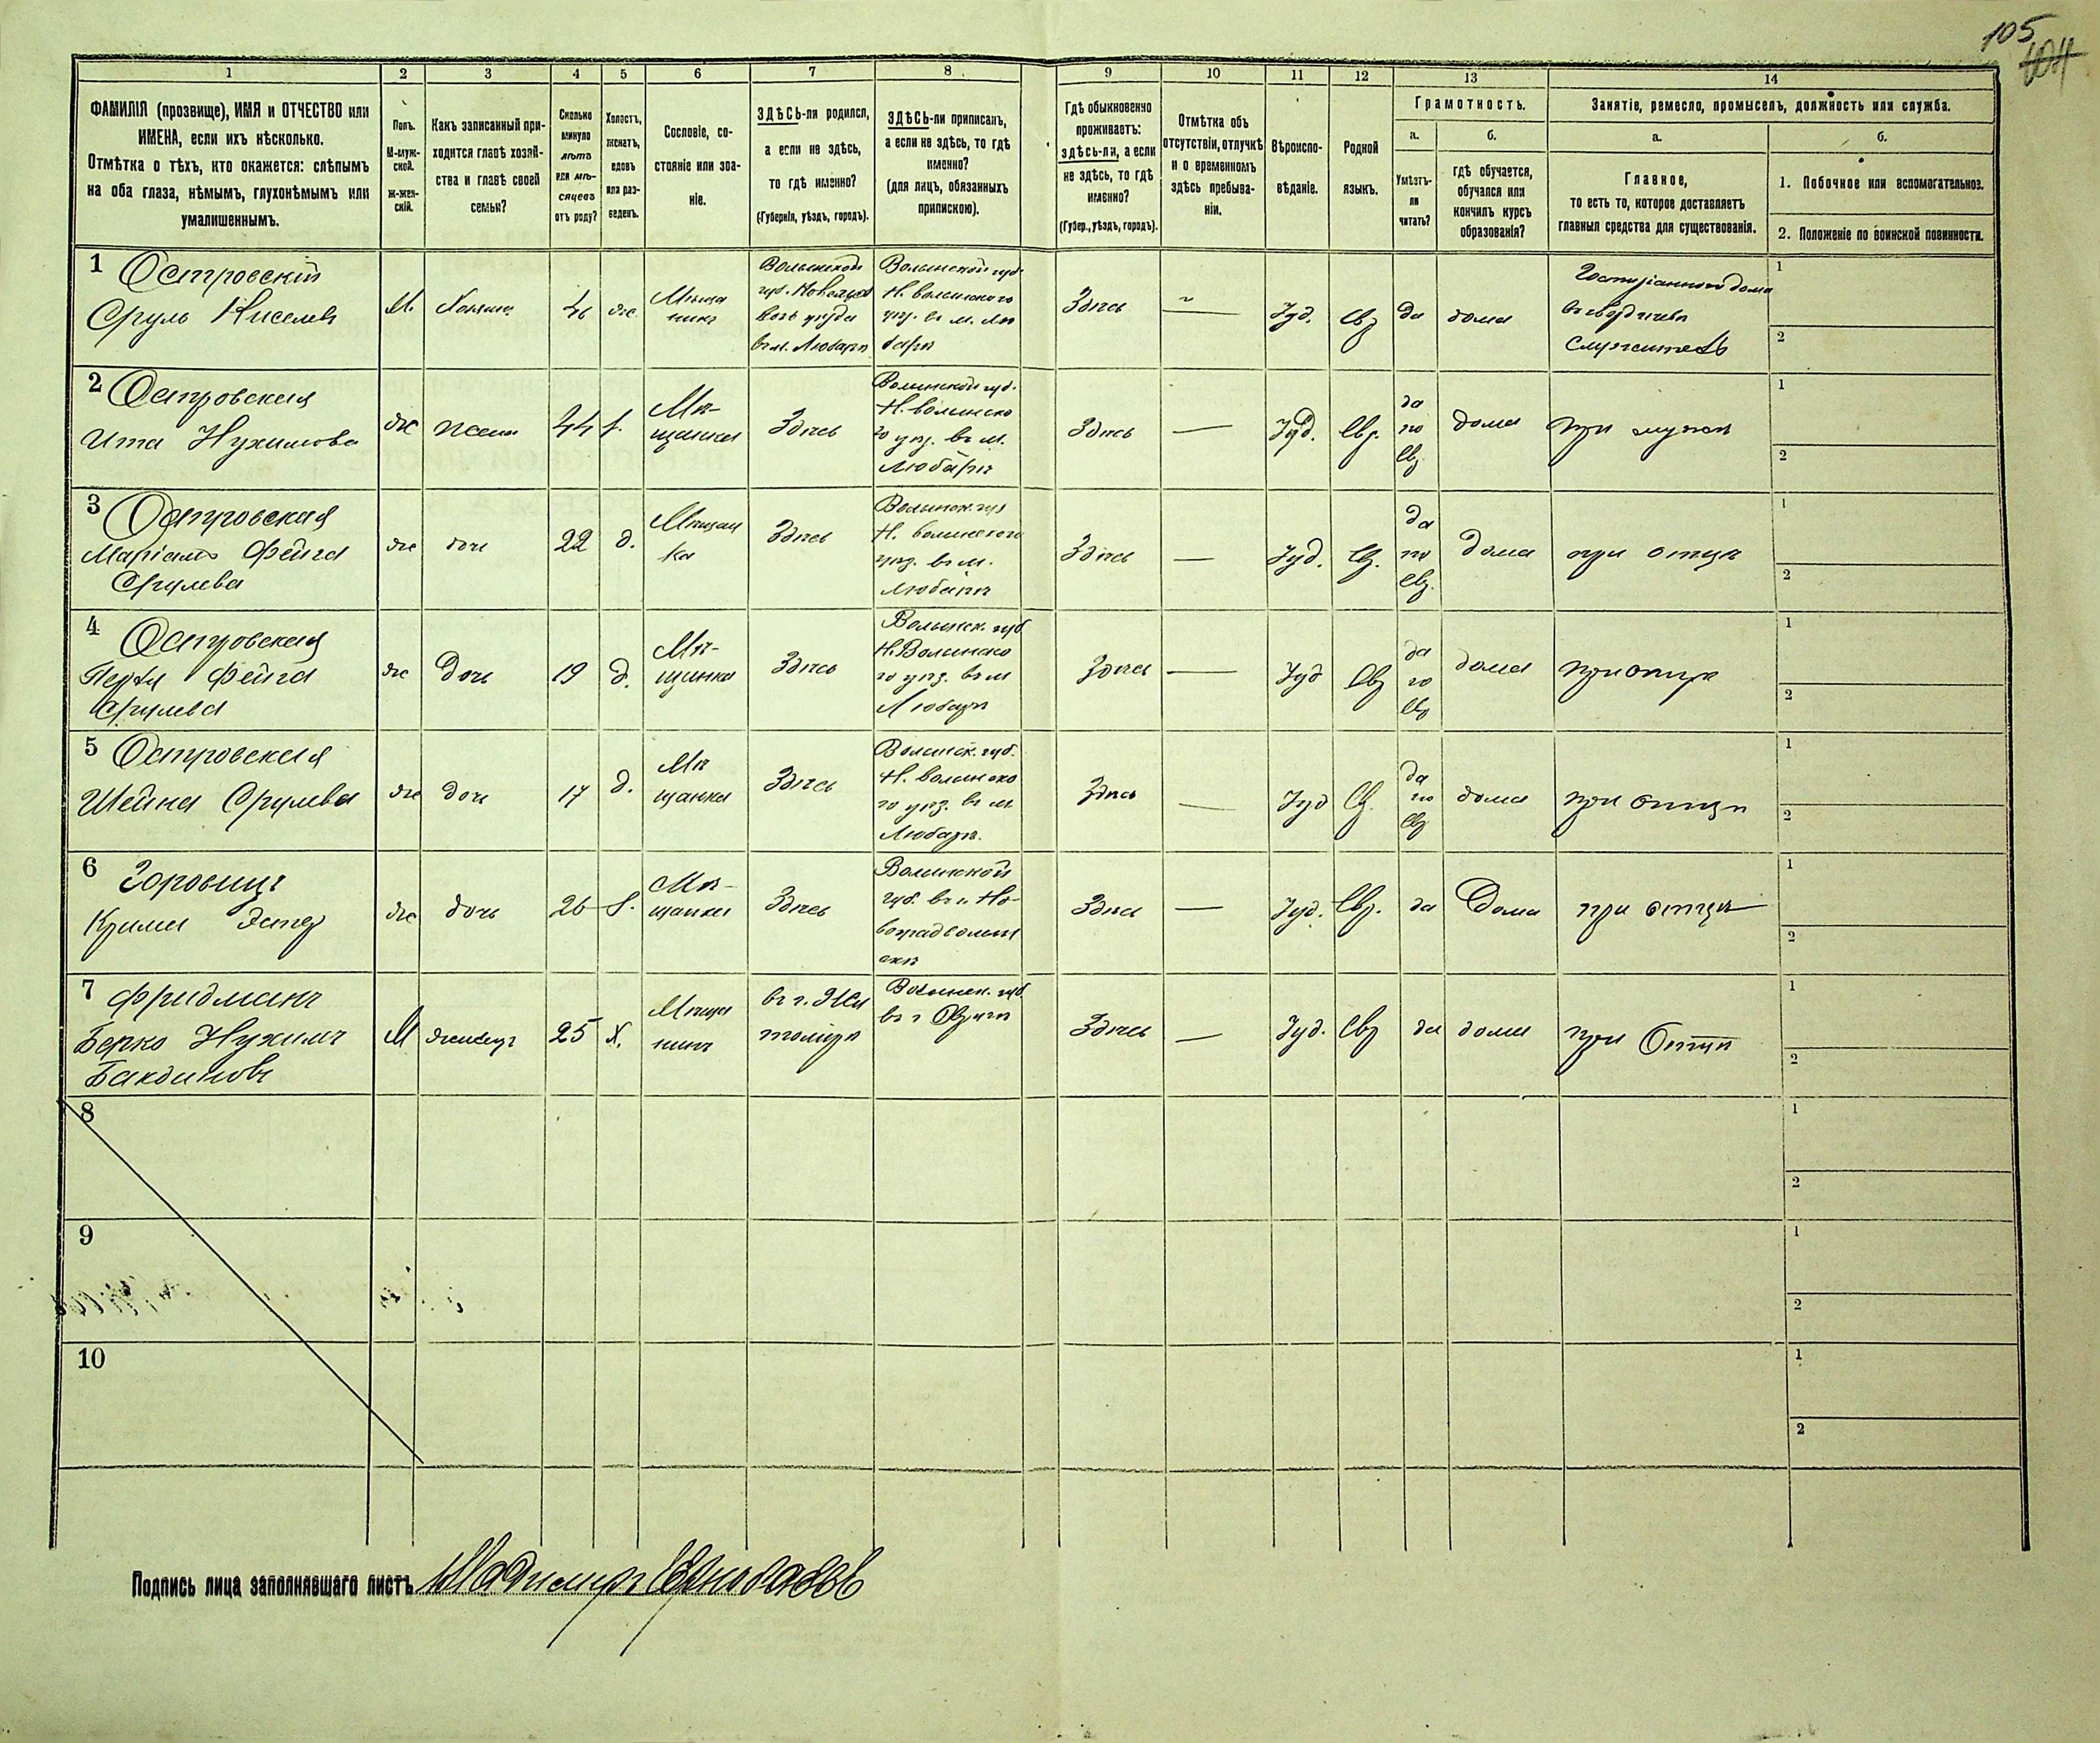 105
104
1 2 3 4 5. 6 7 8 9 10 11 12 13 14
ФАМИЛІЯ (прозвище), ИМЯ и ОТЧЕСТВО или
ИМЕНА, если ихъ нѣсколько.
Отмѣтка о тѣхъ, кто окажется: слѣпымъ
на оба глаза, нѣмымъ, глухонѣмымъ или
умалишеннымъ.
Полъ.
М-муж-
ской.
ж-жен-
скій.
Какъ записанный при-
ходится главѣ хозяй-
ства и главѣ своей
семьи?
Сколько
минуло
лѣтъ
или мѣ-
сяцевъ
отъ роду?
Холостъ,
женатъ,
вдовъ
или раз-
веденъ.
Сословіе, со-
стояніе или зва-
ніе.
ЗДѢСЬ-ли родился,
а если не здѣсь,
то гдѣ именно?
(Губернія, уѣздъ, городъ).
ЗДѢСЬ-ли приписанъ,
а если не здѣсь, то гдѣ
именно?
(для лицъ, обязанныхъ
припискою).
Гдѣ обыкновенно
проживаетъ:
здѣсь-ли, а если
не здѣсь, то гдѣ
именно?
(Губер., уѣздъ, городъ).
Отмѣтка объ
отсутствіи, отлучкѣ
и о временномъ
здѣсь пребыва-
ніи.
Вѣроиспо-
вѣданіе.
Родной
языкъ.
Грамотность.
а.
Умѣетъ-
ли
читать?
б.
гдѣ обучается,
обучался или
кончилъ курсъ
образованія?
Занятіе, ремесло, промыселъ, должность или служба.
а.
Главное,
то есть то, которое доставляетъ
главныя средства для существованія.
б.
1. Побочное или вспомогательное.
2. Положеніе по воинской повинности.
1 Островскій
Сруль Киселевъ
М.
Хозяинъ
46
же.
Мѣща
нинъ
Волынской
губ. Новоград
волъ уѣзда
въ м. Любарѣ
Волынской губ.
Н. волынского
уѣз. въ м. Лю
барѣ
Здѣсь
—
Іуд.
Евр
да
дома
въ Бердичевѣ
служитель
1
2
2 Островская
Ита Нухимова
же
жена
44
Мѣ-
щанка
Здѣсь
Волынской губ.
Н. волынско
го уѣз. въ м.
Любарѣ
Здѣсь
—
Іуд.
Евр.
да
по
Евр
дома
при мужѣ
1
2
3 Островская
Маріамъ Фейга
Срулева
же
дочь
22
д.
Мѣщан
ка
Здѣсь
Волынск. губ
Н. волынского
уѣз. въ м.
Любарѣ
Здѣсь
—
Іуд.
Евр.
да
по
Евр.
дома
при отцѣ
1
2
4 Островская
Перля Фейга
Срулева
же
дочь
19
д.
Мѣ-
щанка
Здѣсь
Волынск. губ
Н. Волынско
го уѣз. въ м
Любарѣ
Здѣсь
—
Іуд
Евр
да
по
Евр
дома
при отцѣ
1
2
5 Островская
Шейна Срулева
же
дочь
17
д.
Мѣ
щанка
Здѣсь
Волынск. губ.
Н. волынско
го уѣз. въ м.
Любарѣ.
Здѣсь
—
Іуд
Евр.
да
по
Евр
дома
при отцѣ
1
2
6 Горовицъ
Эстер
же
дочь
26
Мѣ-
щанка
Здѣсь
Волынской
губ. въ г. Но-
воградволын
скѣ
Здѣсь
—
Іуд.
Евр.
да
Дома
при отцѣ
1
2
7 Фридманъ
Берко Нухимъ
М
25
х.
Мѣща
нинъ
въ г. Жи
томірѣ
Волынск. губ.
въ г Овручѣ
Здѣсь
—
Іуд.
Евр
да
дома
при Отцѣ
1
2
8
1
2
9
1
2
10
1
2
Подпись лица заполнявшаго листъ